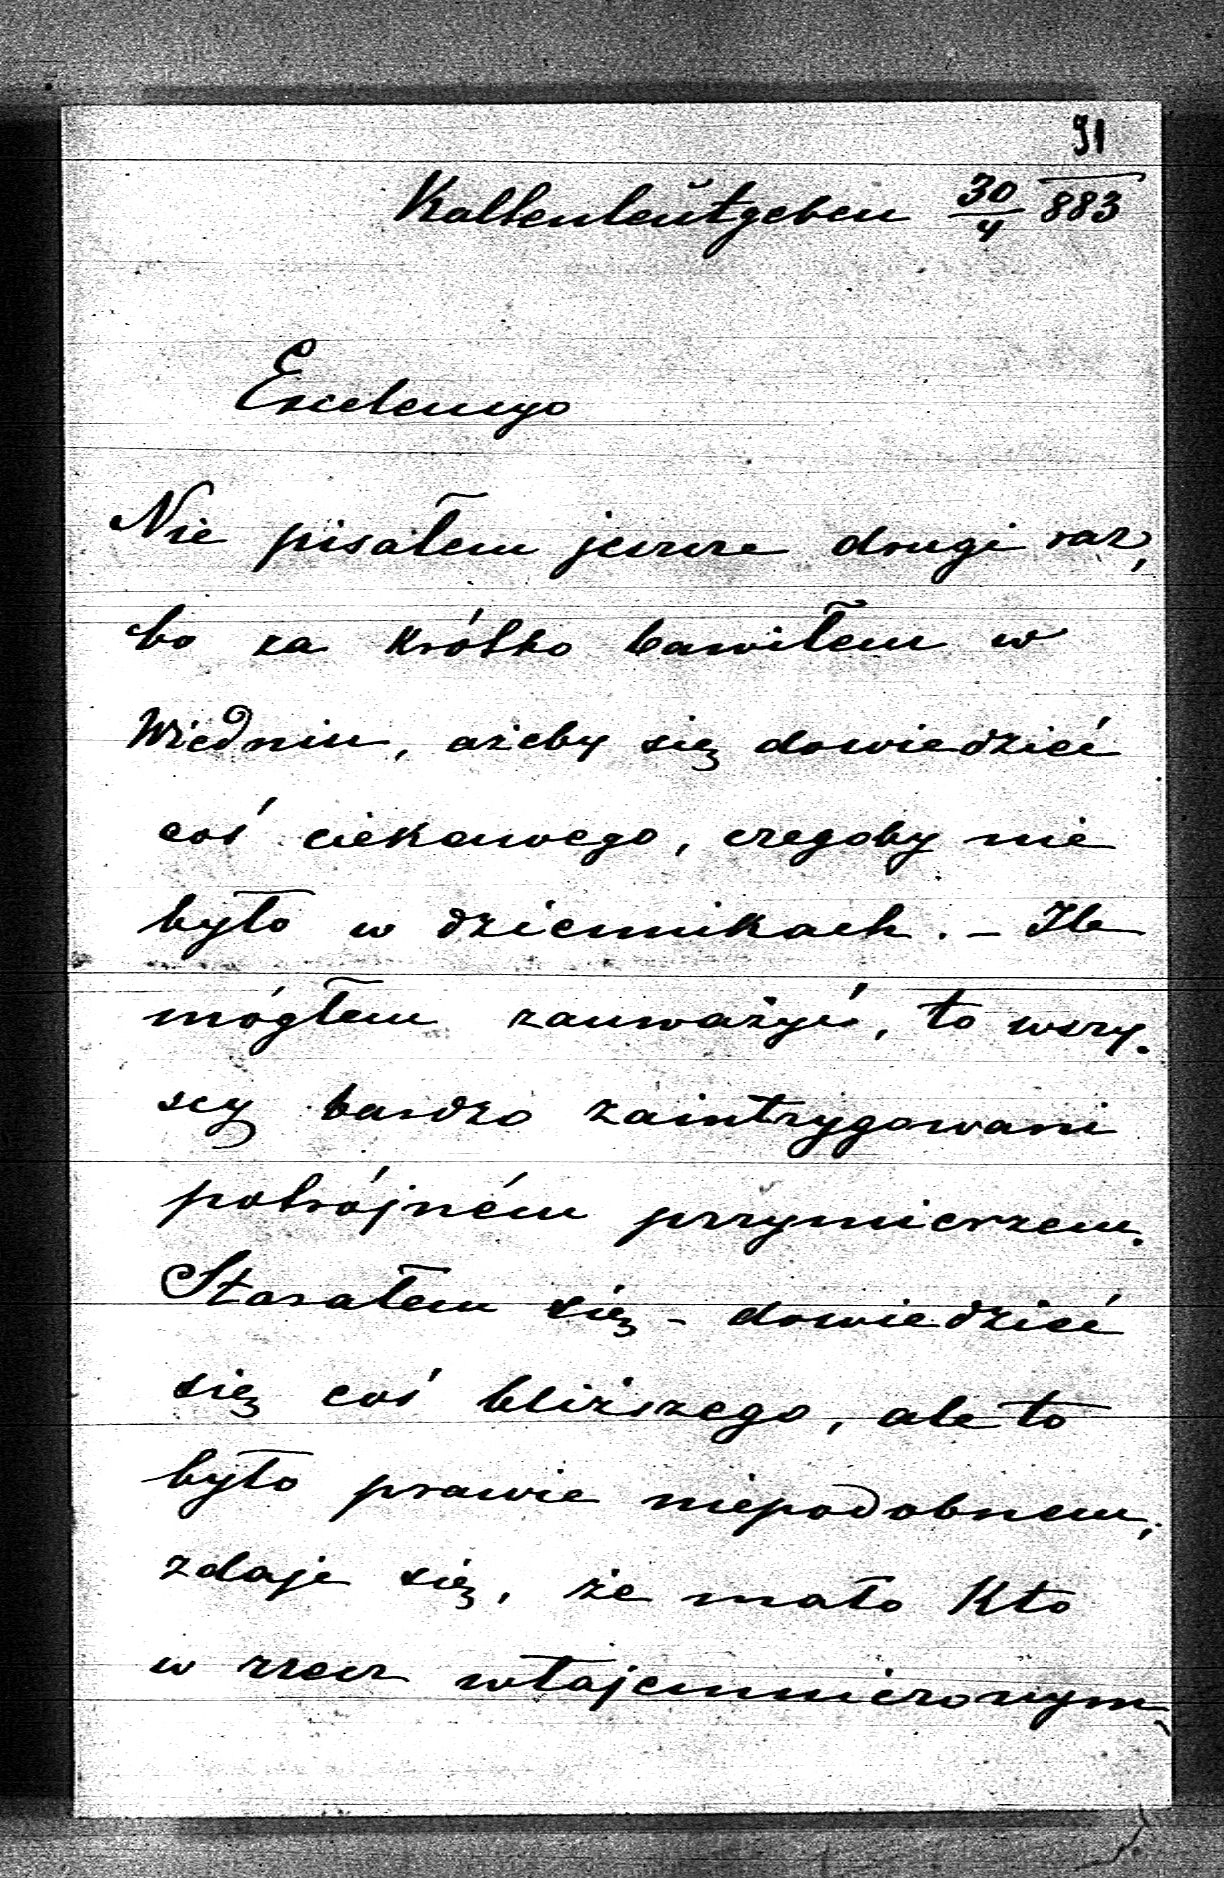 91
Kaltenleutgeben 30/4 883
Excelencyo
Nie pisałem jeszcze drugi raz,
bo za krótko bawiłem w
Wiedniu, ażeby się dowiedzieć
coś ciekawego, czegoby nie
było w dziennikach. – Ile
mógłem zauważyć, to wszy-
scy bardzo zaintrygowani
potrójném przymierzem.
Starałem się – dowiedzieć
się coś bliższego, ale to
było prawie niepodobnem,
zdaje się, że mało kto
w rzecz wtajemniczonym,